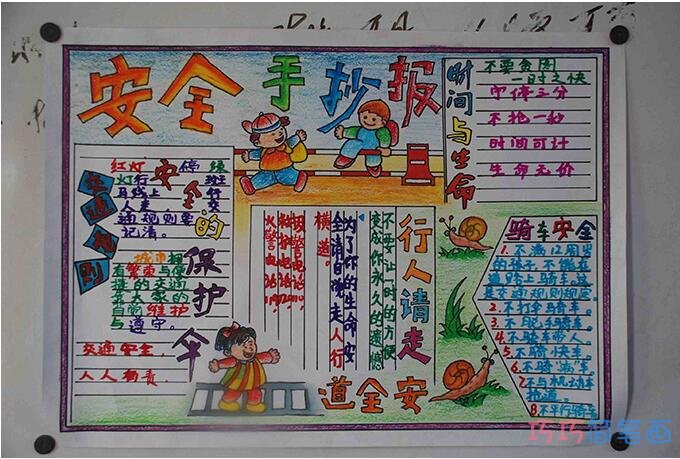 安全手抄报
时间与生命
不要贪图
一时之快
宁停三分
不抢一秒
时间可计
生命无价
交通规则
安全的保护伞
红灯停绿
灯行
斑
马线上行
人走
交
通规则要
记清。
城市拥
有繁荣与便
捷的交通
靠大家的
自觉维护
与遵守。
交通安全,
人人有责。
行人请走
安全道
不要让一时的方便
变成你永久的遗憾
为了你的生命安
全请自觉走人行
横道。
骑车安全
1.不满12周岁
的孩子,不能在
道路上骑车,这
是交通规则规定。
2.不打伞骑车。
3.不脱手骑车。
4.不骑车带人。
5.不骑快车。
6.不骑"病"车。
7.不与机动车
抢道。
8.不平行骑车
巧巧简笔画